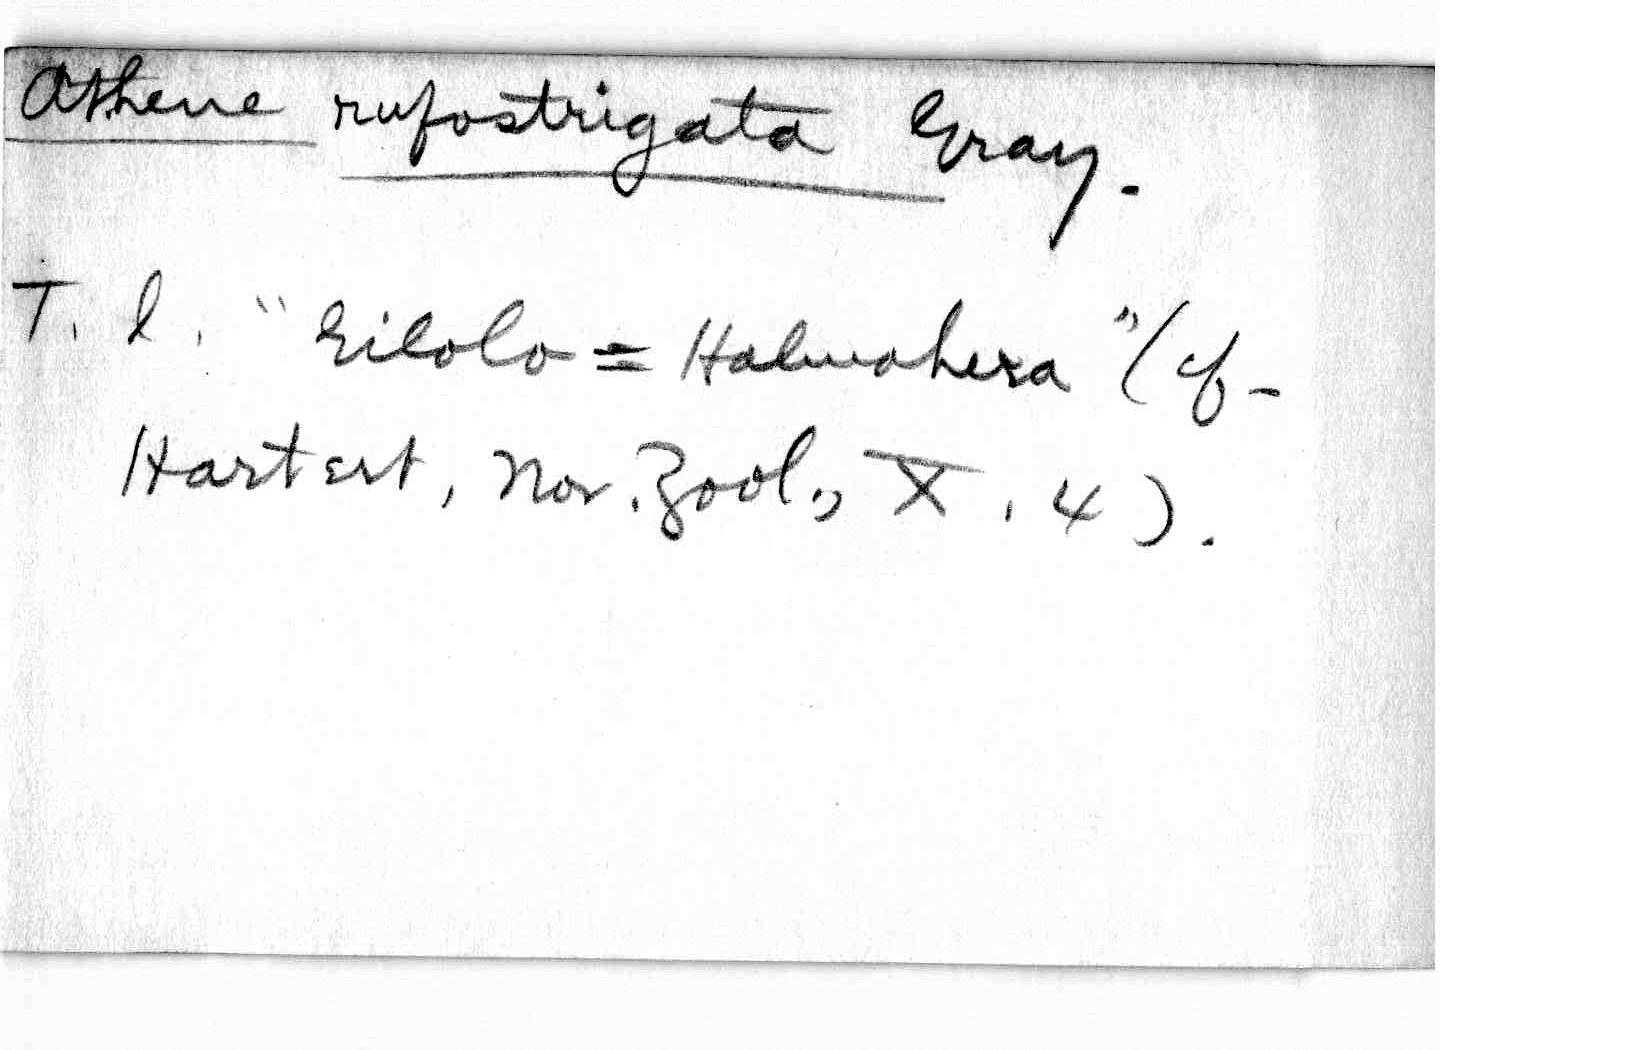 Athene rufostrigata Gray.
T. l. "Gilolo = Halmahera" (cf-
Hartert, Nov. Zool., X, 4).